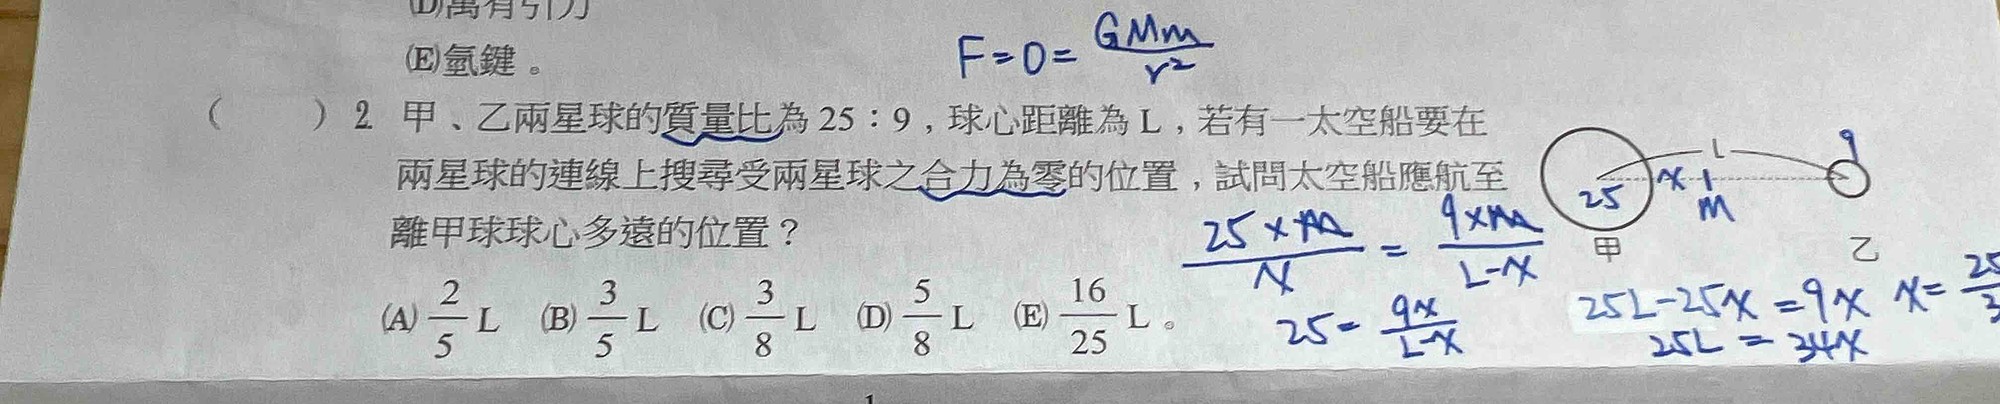 (D)萬有引力
(E)氫鍵。
F=0=GMm/r²
( )2 甲、乙兩星球的質量比為 25：9，球心距離為 L，若有一太空船要在
兩星球的連線上搜尋受兩星球之合力為零的位置，試問太空船應航至
離甲球球心多遠的位置？
(A) 2/5 L (B) 3/5 L (C) 3/8 L (D) 5/8 L (E) 16/25 L。
L 9
25 x M
甲 乙
25×m/x = 9×m/L-x
25=9x/L-x
25L-25x=9x
25L=34x
x=